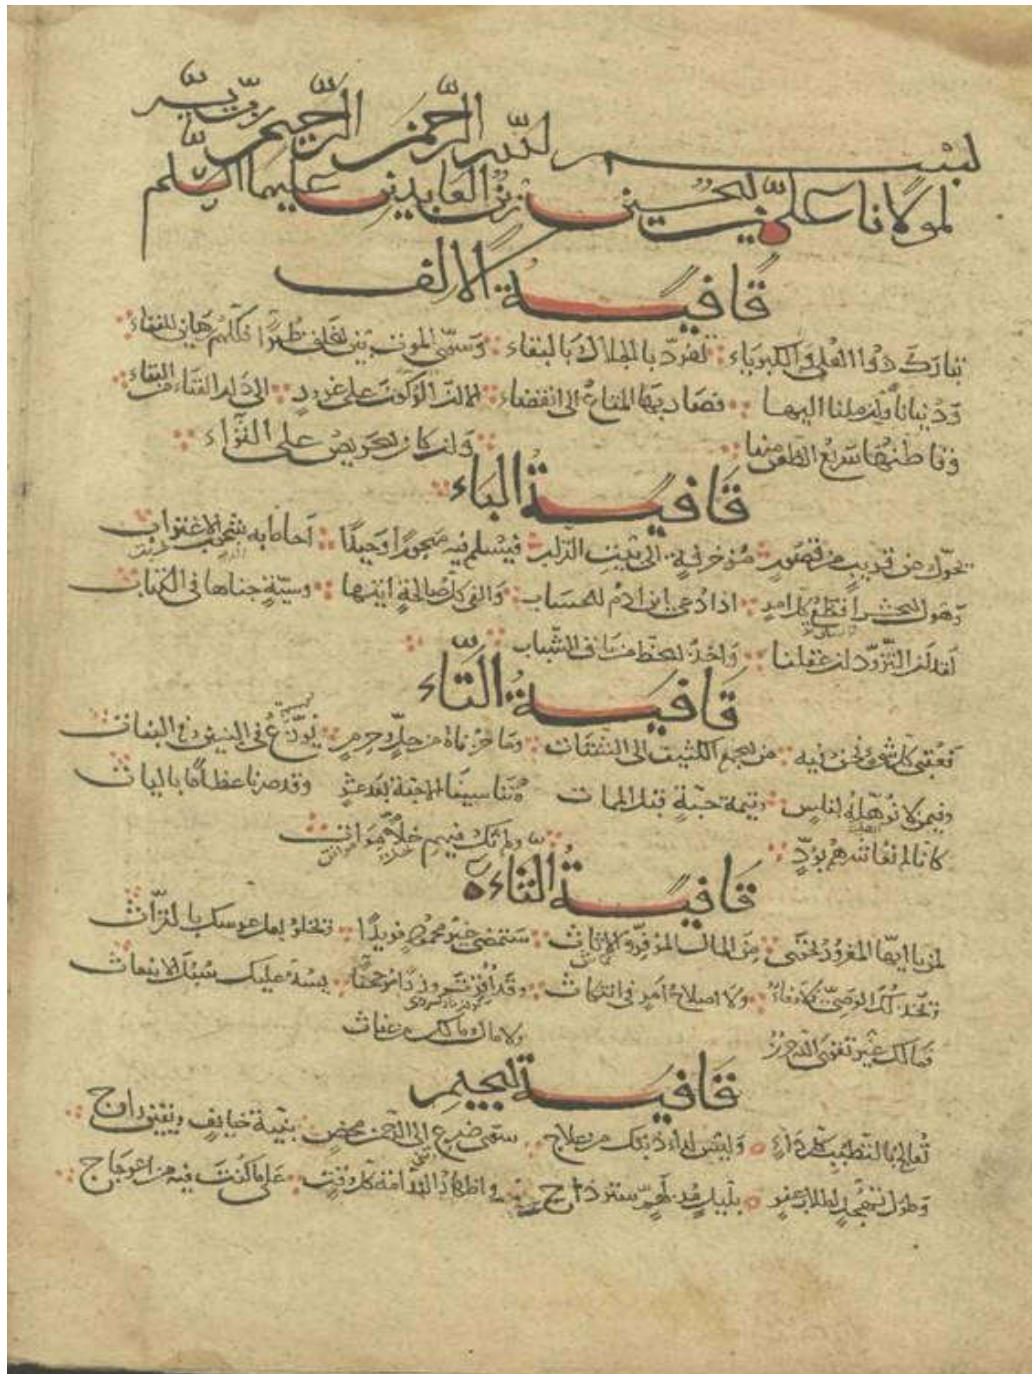 بسم الله الرحمن الرحيم رب يسر
لمولانا علي بن الحسين زين العابدين عليهما السلم
قافية الالف
تبارك ذوا العلى والكبرياء تفرد بالجلال بالبقاء وسوى الموت بين الخلق طرا فكلهم رهاين للفناء
ودنيانا وان ملنا اليها فصار بها المتاع الى انقضاء الا ان الركون على غرور الى دار الفناء من البقاء
وقاطنها سريع الظعن منها وان كان الحريص على الثواء
قافية الباء
يحول عن قريب من قصور مزخرفة الى بيت التراب فيسلم فيه مهجورا وحيدا احاط به شحوب الاغتراب
وهول الحشر افظع كل امر اذا دعي ابن ادم للحساب والفى كل صالحة اتيها وسيئة جناها في الكتاب
لقد ان التزود ان عقلنا واخذ الحظ من باقي الشباب
قافية التاء
فعقبى كل شيء نحن فيه من الجمع الكثيف الى الشتات وما حزناه من حل وحرم يوزع في البنين وفي البنات
وفيمن لم نؤهله لفلس وقيمة حبة قبل الممات وتناسينا الاحبة بعد عشر وقد صرنا عظاما باليات
كانا لم نعاشرهم بود ولم تك فيهم خل موات
قافية الثاء
لمن يا ايها المغرور تحوى من المال الموفر والاثاث ستمضي غير محمود فريدا وتخلو بعل عرسك بالتراث
ويخذلك الوصي بلا وفاء ولا اصلاح امر في انتكاث وقد اوقرت وزرا مرجحنا يسد عليك سبل الانبعاث
فما لك غير تقوى الله حرز ولا مالك وما لك من غياث
قافية الجيم
تعالج بالتطبب كل داء وليس لداء ذنبك من علاج سوى ضرع الى الرحمن محض بنية خايف ويقين راج
وطول تهجد لطلاب عفو بليل مدلهم ستر داج واظهار الندامة كل وقت على ما كنت فيه من اعوجاج